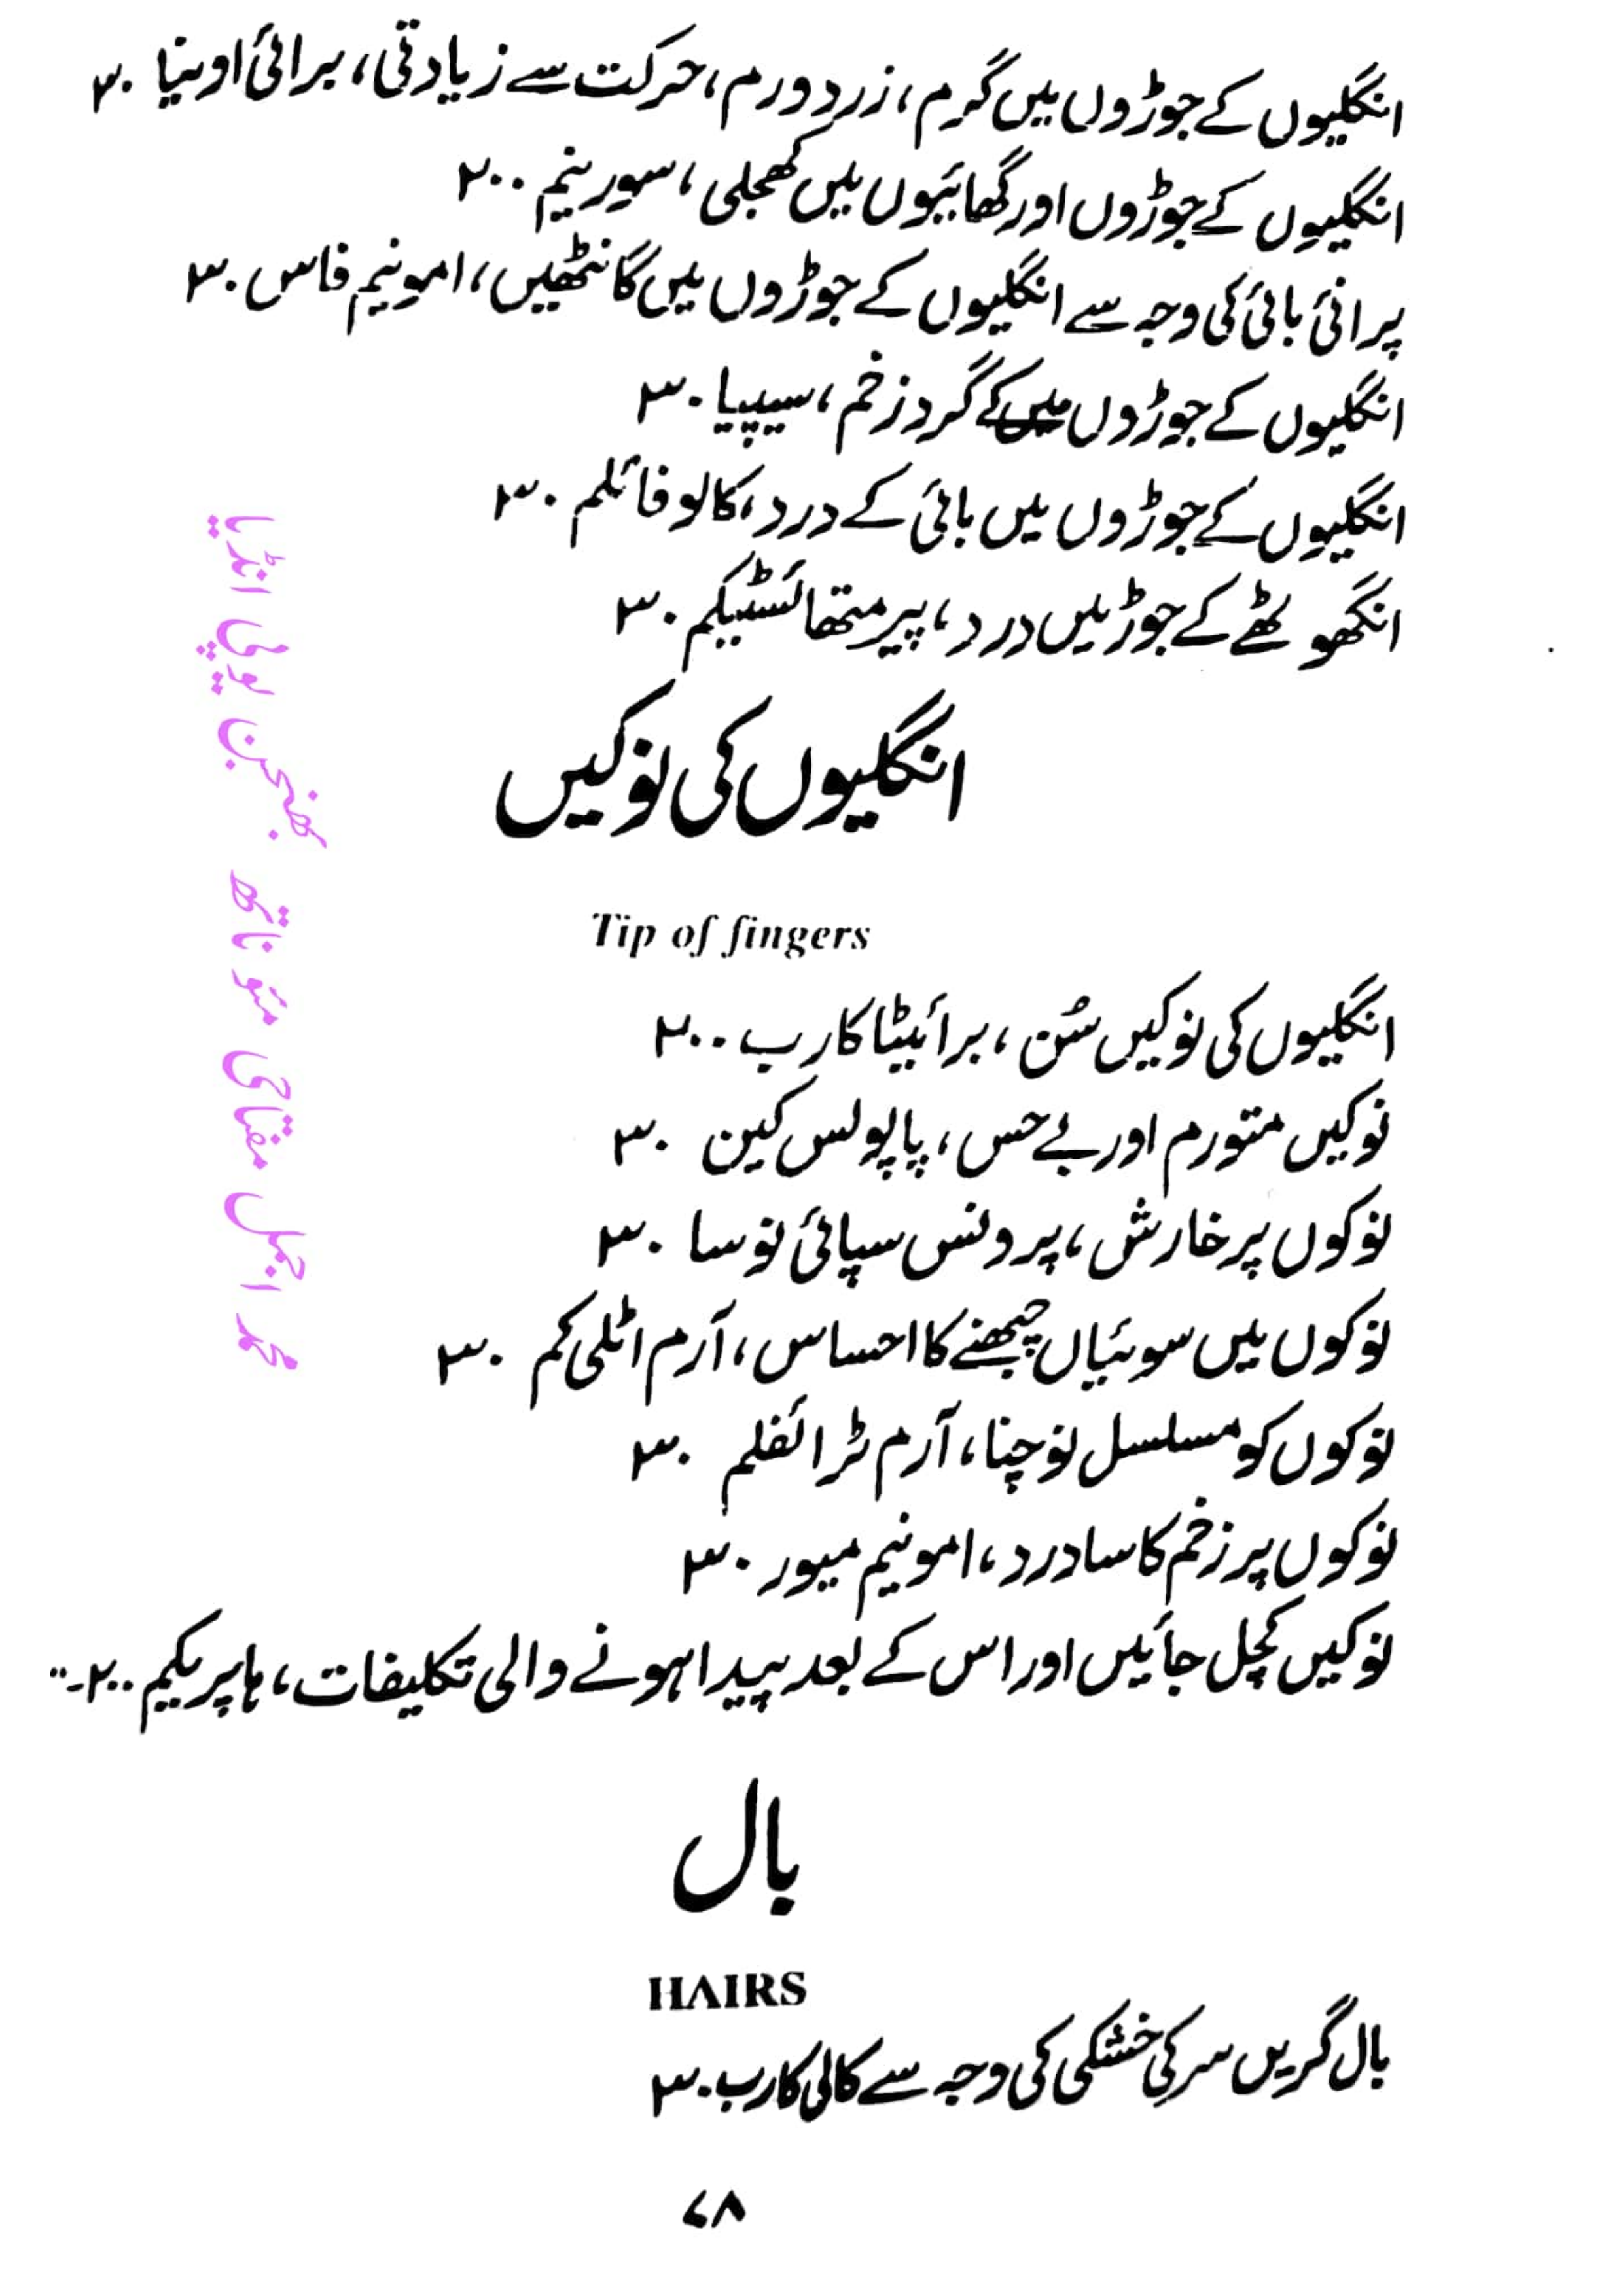 انگلیوں کے جوڑوں میں گرم، زرد ورم، حرکت سے زیادتی، برائی اونیا ۳۰
انگلیوں کے جوڑوں اور گھائیوں میں کھجلی، سورینم ۲۰۰
پرانی بائی کی وجہ سے انگلیوں کے جوڑوں میں گانٹھیں، امونیم فاس ۳۰
انگلیوں کے جوڑوں میں کے گرد زخم، سیپیا ۳۰
انگلیوں کے جوڑوں میں بائی کے درد، کالو فائلم ۳۰
انگھوٹھے کے جوڑ میں درد، پیر متھائسٹیکم ۳۰
انگلیوں کی نوکیں
Tip of fingers
انگلیوں کی نوکیں سُن، برائیٹا کارب ۲۰۰
نوکیں متورم اور بے حس، پاپولس کین ۳۰
نوکوں پر خارش، پرونس سپائی نوسا ۳۰
نوکوں میں سوئیاں چبھنے کا احساس، آرم اٹلی کم ۳۰
نوکوں کو مسلسل نوچنا، آرم ٹرائفلم ۳۰
نوکوں پر زخم کا سا درد، امونیم میور ۳۰
نوکیں کچل جائیں اور اس کے بعد پیدا ہونے والی تکلیفات، ہاپریکم ۲۰۰-
بال
HAIRS
بال گریں سر کی خشکی کی وجہ سے کالی کارب ۳۰
۷۸
محمد اجمل مفتاحی مئو ناتھ بھنجن یوپی انڈیا